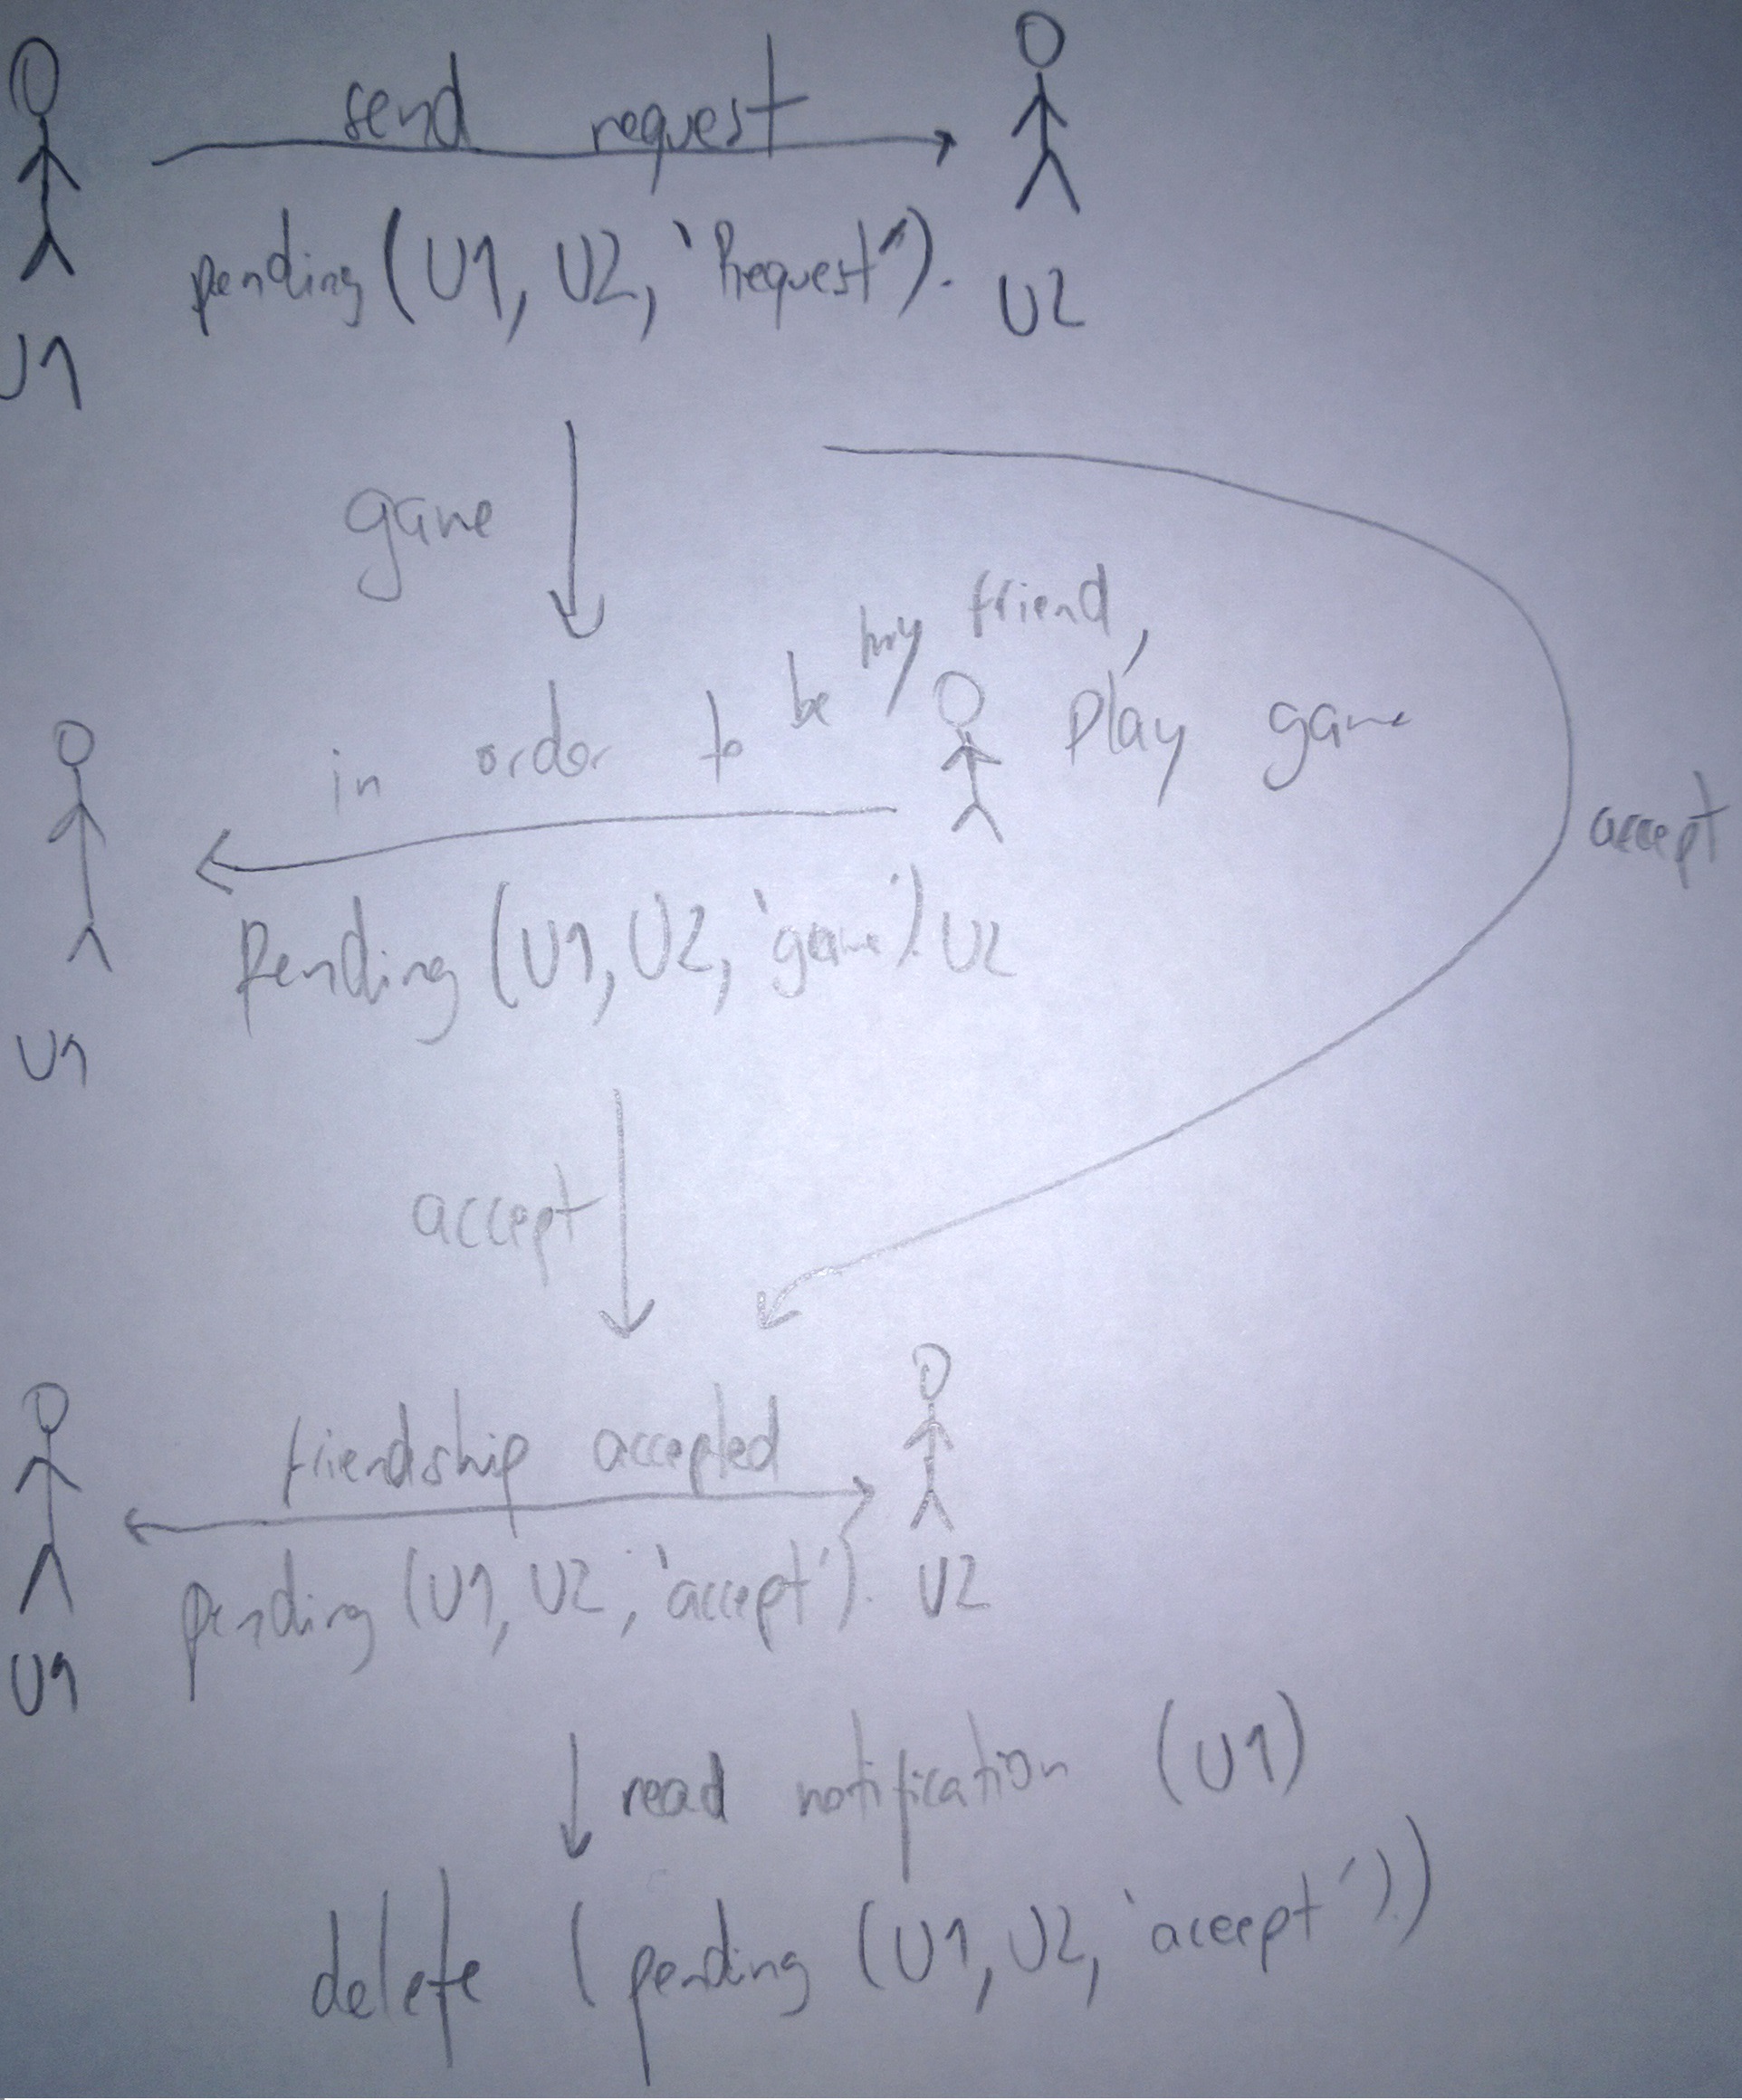 send request
pending (U1, U2, 'Request').
U1
U2
game
in order to be my friend,
play game
accept
pending (U1, U2, 'game').
U2
U1
accept
friendship accepted
pending (U1, U2, 'accept').
U2
U1
read notification (U1)
delete (pending (U1, U2, 'accept').)